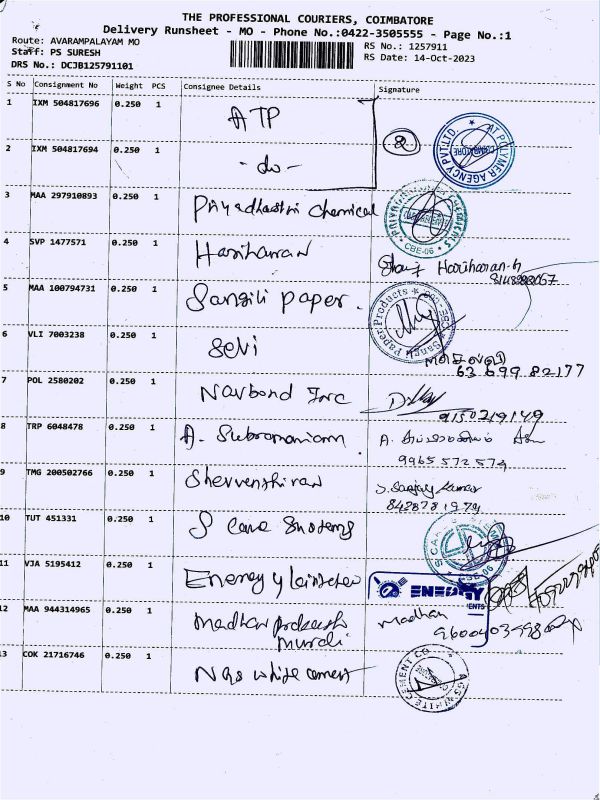 THE PROFESSIONAL COURIERS, COIMBATORE
Delivery Runsheet - MO - Phone No.:0422-3505555 - Page No.:1
Route: AVARAMPALAYAM MO
Staff: PS SURESH
DRS No.: DCJB125791101
RS No.: 1257911
RS Date: 14-Oct-2023
S No Consignment No Weight PCS Consignee Details Signature
1 IXM 504817696 0.250 1 ATP
2 IXM 504817694 0.250 1 -do-
AT POLYMER AGENCY PVT.LTD. COIMBATORE
3 MAA 297910893 0.250 1 Priyadharshi chemical
CBE-06
4 SVP 1477571 0.250 1 Hariharan
Hariharan
5 MAA 100794731 0.250 1 Sangili paper.
Paper Products
6 VLI 7003238 0.250 1 Selvi
63 699 82177
7 POL 2580202 0.250 1 Navbond Inc
9150219149
8 TRP 6048478 0.250 1 A. Subramaniam
A.
9965 572 574
9 TMG 200502766 0.250 1
Sanjay Kumar
8428781979
10 TUT 451331 0.250 1 S Care Systems
S CARE
CBE-06
11 VJA 5195412 0.250 1 Energy
ENERGY
12 MAA 944314965 0.250 1 Madhan prakash
murali
Madhan
13 COK 21716746 0.250 1 Nags white cement
AGS WHITE CEMENT CO